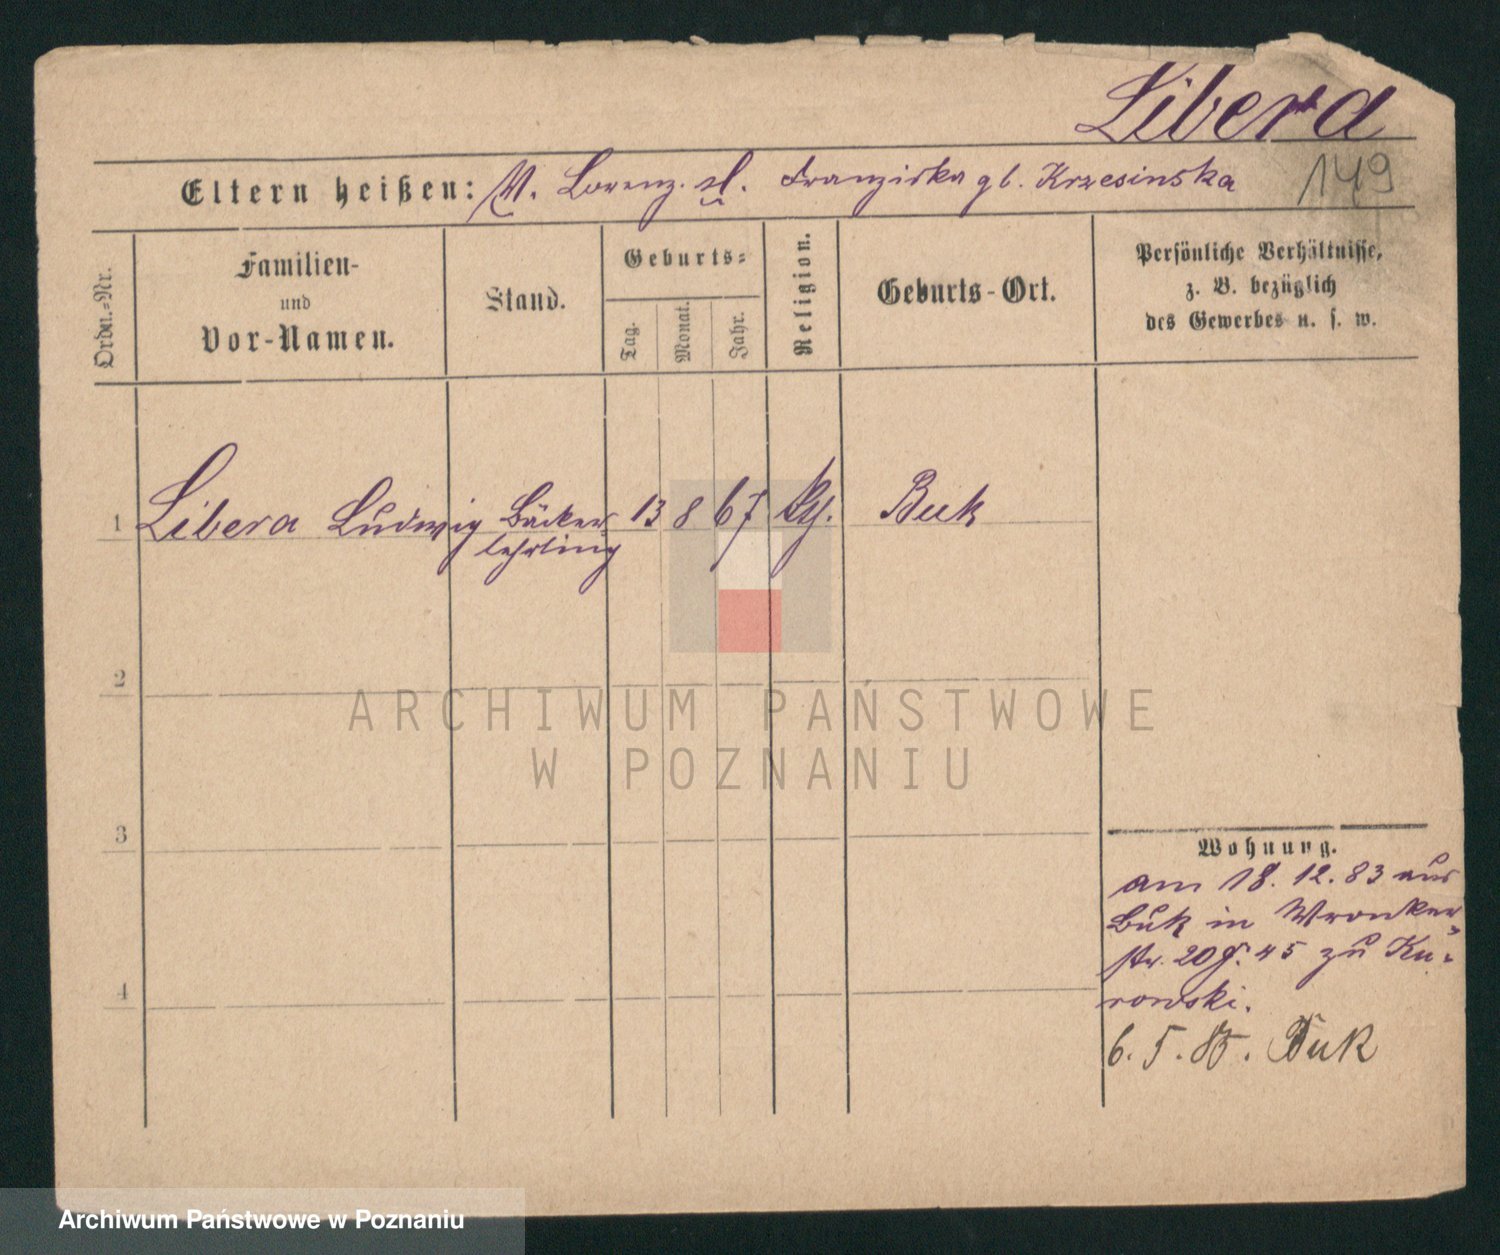 Libera
149
Eltern heißen: V. Lorenz. M. Franziska gb. Krzesinska
Ordn.-Nr.
Familien-
und
Vor-Namen.
Stand.
Geburts-
Tag.
Monat.
Jahr.
Religion.
Geburts-Ort.
Persönliche Verhältnisse,
z. B. bezüglich
des Gewerbes u. s. w.
1 Libera Ludwig Bäcker- 13 8 67 Buk
lehrling
2
3
4
Wohnung.
am 18. 12. 83 aus
Buk in Wronker-
str. 20 45 zu Ku-
rowski.
6. 5. 85. Buk
ARCHIWUM PAŃSTWOWE
W POZNANIU
Archiwum Państwowe w Poznaniu